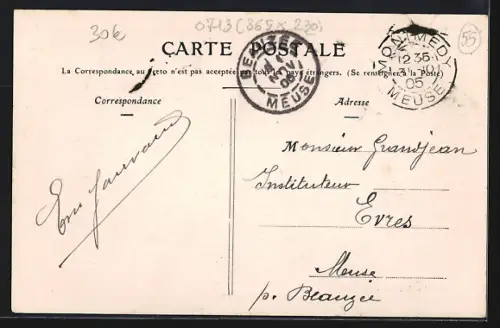 30k
0713 (365 x 230)
55
CARTE POSTALE
La Correspondance au recto n'est pas acceptée par tous les pays étrangers. (Se renseigner à la Poste)
Correspondance
Adresse
BEUZÉE
NOV
05
MEUSE
MONTMEDY
12 35
31
05
MEUSE
Monsieur Grandjean
Instituteur
Evres
Meuse
pr. Beauzée